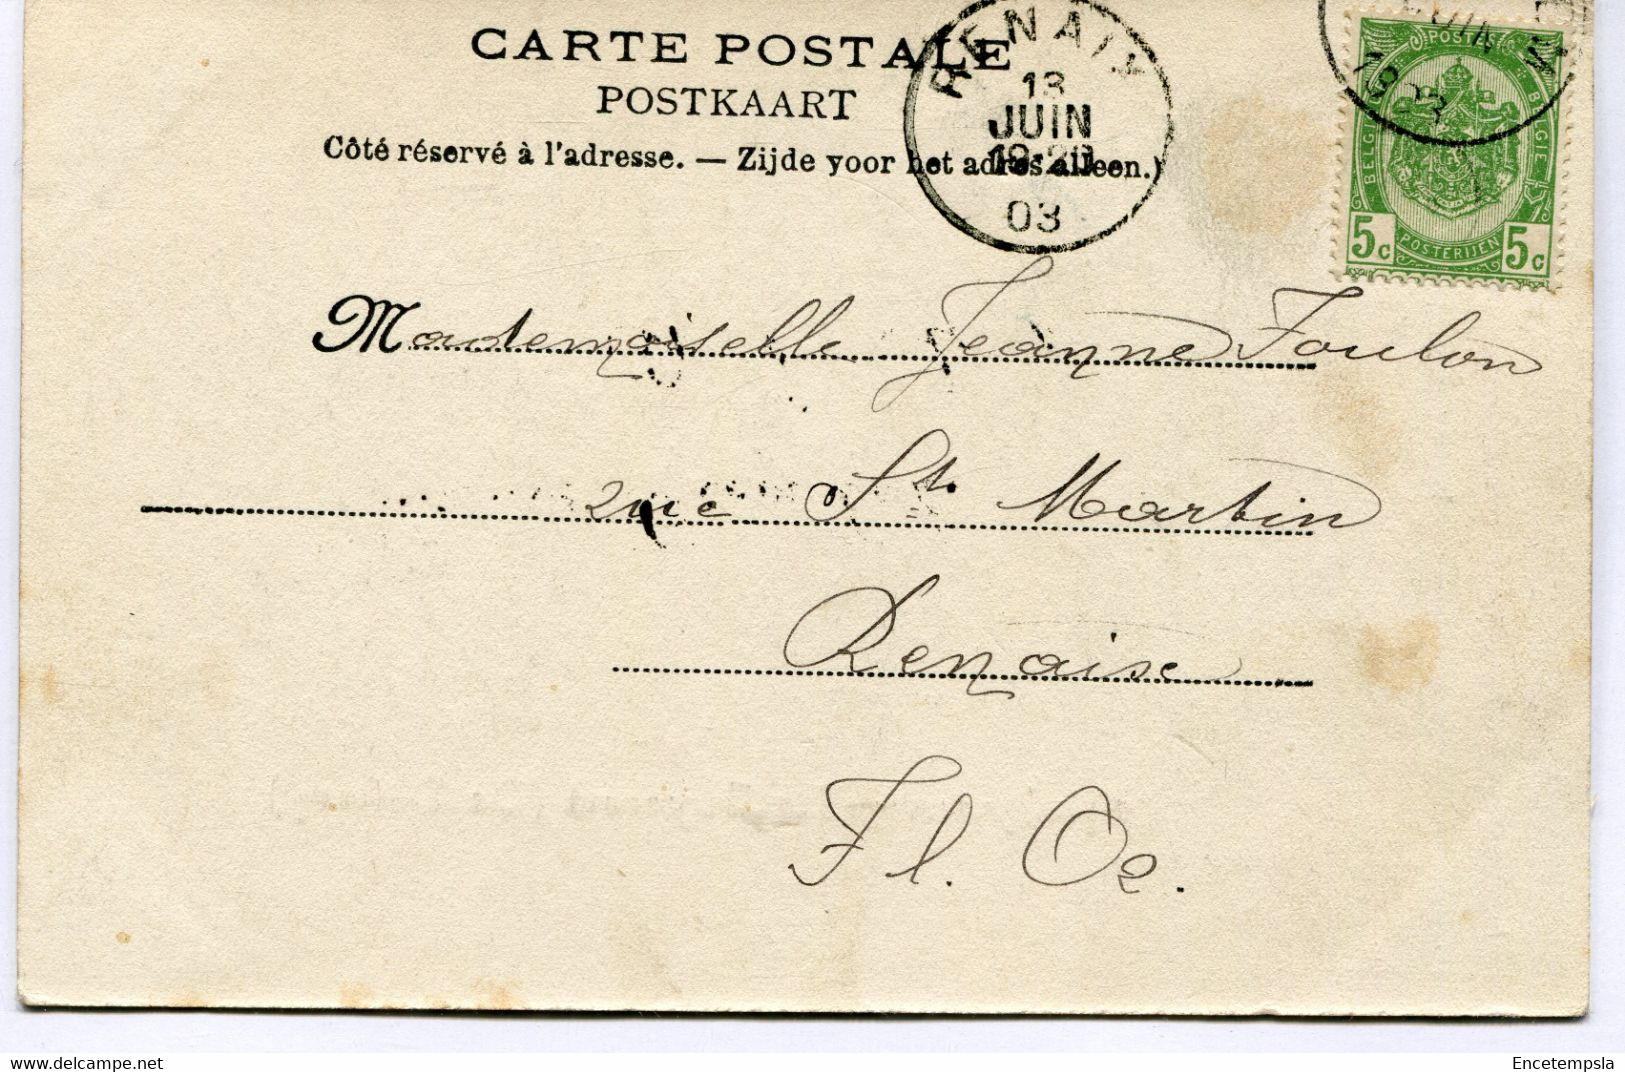 CARTE POSTALE
POSTKAART
Côté réservé à l'adresse. — Zijde voor het adres alleen.)
RENAIX
13
JUIN
03
POSTES
BELGIQUE
BELGIE
5c
POSTERIJEN
5c
Mademoiselle Jeanne Foulon
rue St Martin
Renaise
Fl. Or.
www.delcampe.net
Encetempsla